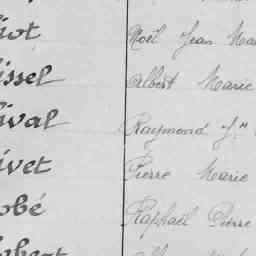 iot Noël Jean Ma
issel Albert Marie
ival Raymond Jn
ivet Pierre Marie
obé Raphaël Pierre
obert